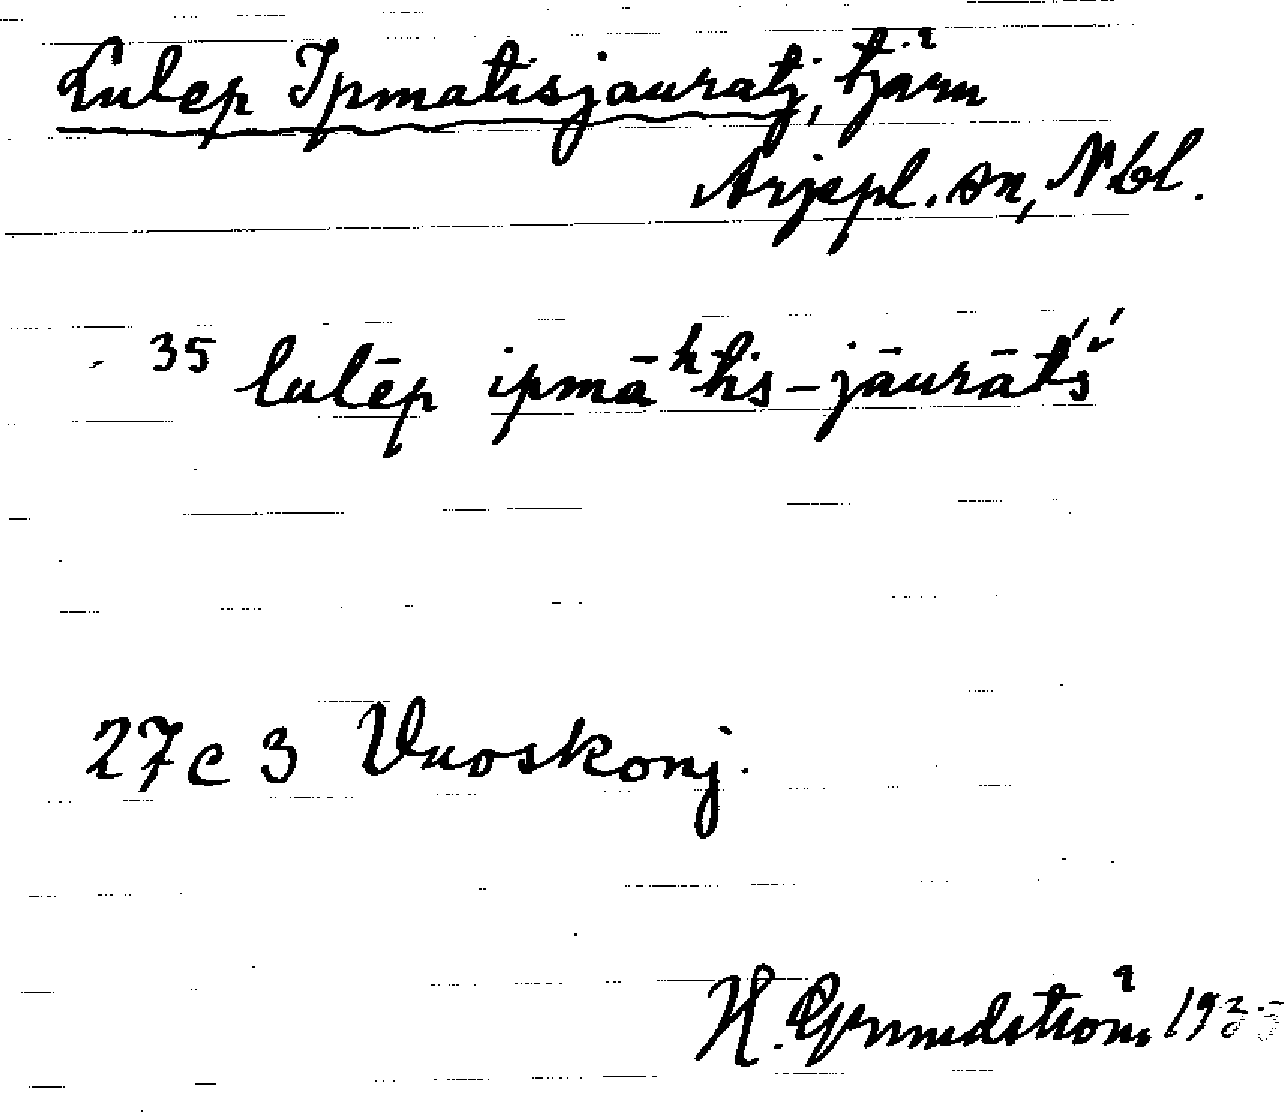 Lulep Ipmatisjauratj, tjärn
Arjepl. sn, Nbl.
35 lulēp ipmāʰtis-jāurātś
27 c 3 Vuoskonj.
H. Grundström